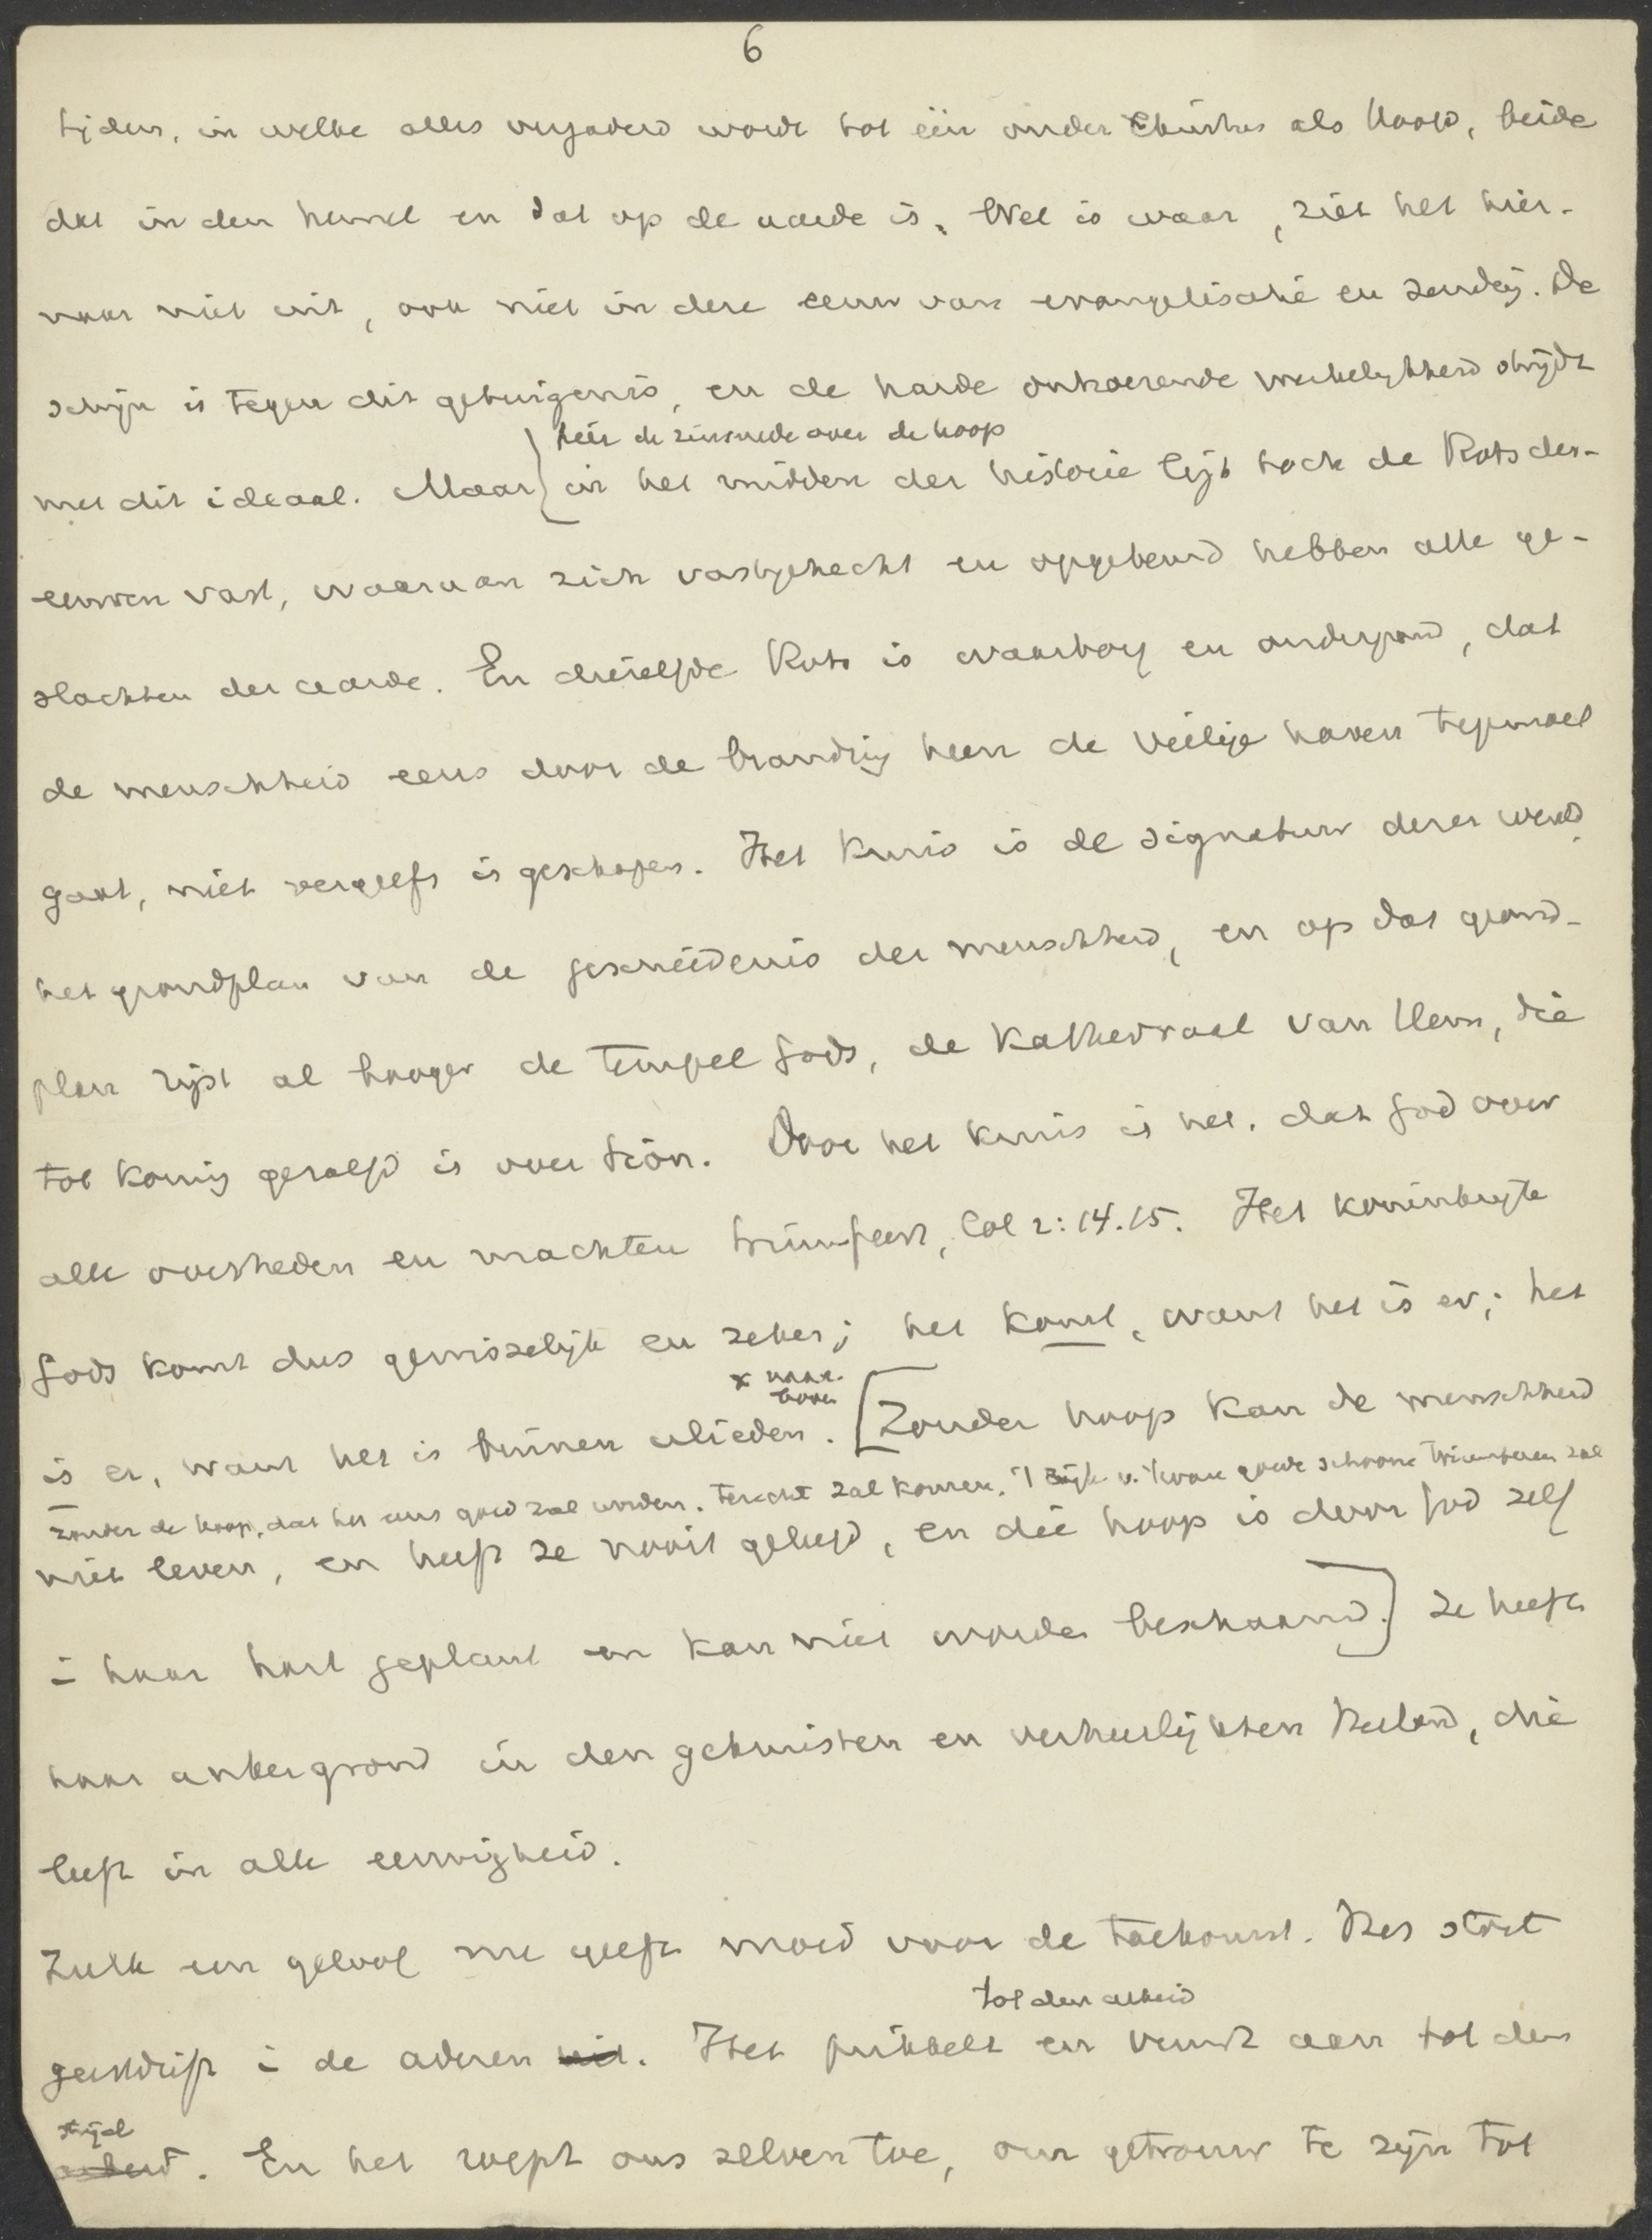 6
tijden, in welke alles vergaderd wordt tot één onder Christus als Hoofd, beide
dat in den hemel en dat op de aarde is. Wel is waar, ziet het hier-
naar niet uit, ook niet in deze eeuw van evangelisatie en zending. De
schijn is tegen dit getuigenis, en de harde ontroerende werkelijkheid strijdt
hier de zinsnede over de hoop
met dit ideaal. Maar in het midden der historie ligt toch de Rots der
eeuwen vast, waaraan zich vastgehecht en opgebeurd hebben alle ge-
slachten der aarde. En diezelfde Rots is waarborg en onderpand, dat
de menschheid eens door de branding heen de veilige haven tegemoet
gaat, niet vergeefs is geschapen. Het kruis is de signatuur dezer wereld,
het grondplan van de geschiedenis der menschheid, en op dat grond-
plan rijst al hooger de tempel Gods, de Kathedraal van Hem, die
tot Koning gezalfd is over Sion. Door het kruis is het, dat God over
alle overheden en machten triumfeert, Col 2:14.15. Het koninkrijk
Gods komt dus gewisselijk en zeker; het komt, want het is er; het
x naar
boven
is er, want het is binnen ulieden. [Zonder hoop kan de menschheid
zonder de hoop, dat het eens goed zal worden. terecht zal komen, 't rijk v. 't ware goede schoone triumferen zal
niet leven, en heeft ze nooit geleefd, en die hoop is door God zelf
in haar hart geplant en kan niet worden beschaamd.] Ze heeft
haar ankergrond in den gekruisten en verheerlijkten Heiland, die
leeft in alle eeuwigheid.
Zulk een geloof nu geeft moed voor de toekomst. Het stort
tot den arbeid
geestdrift in de aderen uit. Het prikkelt en vuurt aan tot den
strijd
arbeid. En het roept ons zelven toe, om getrouw te zijn tot